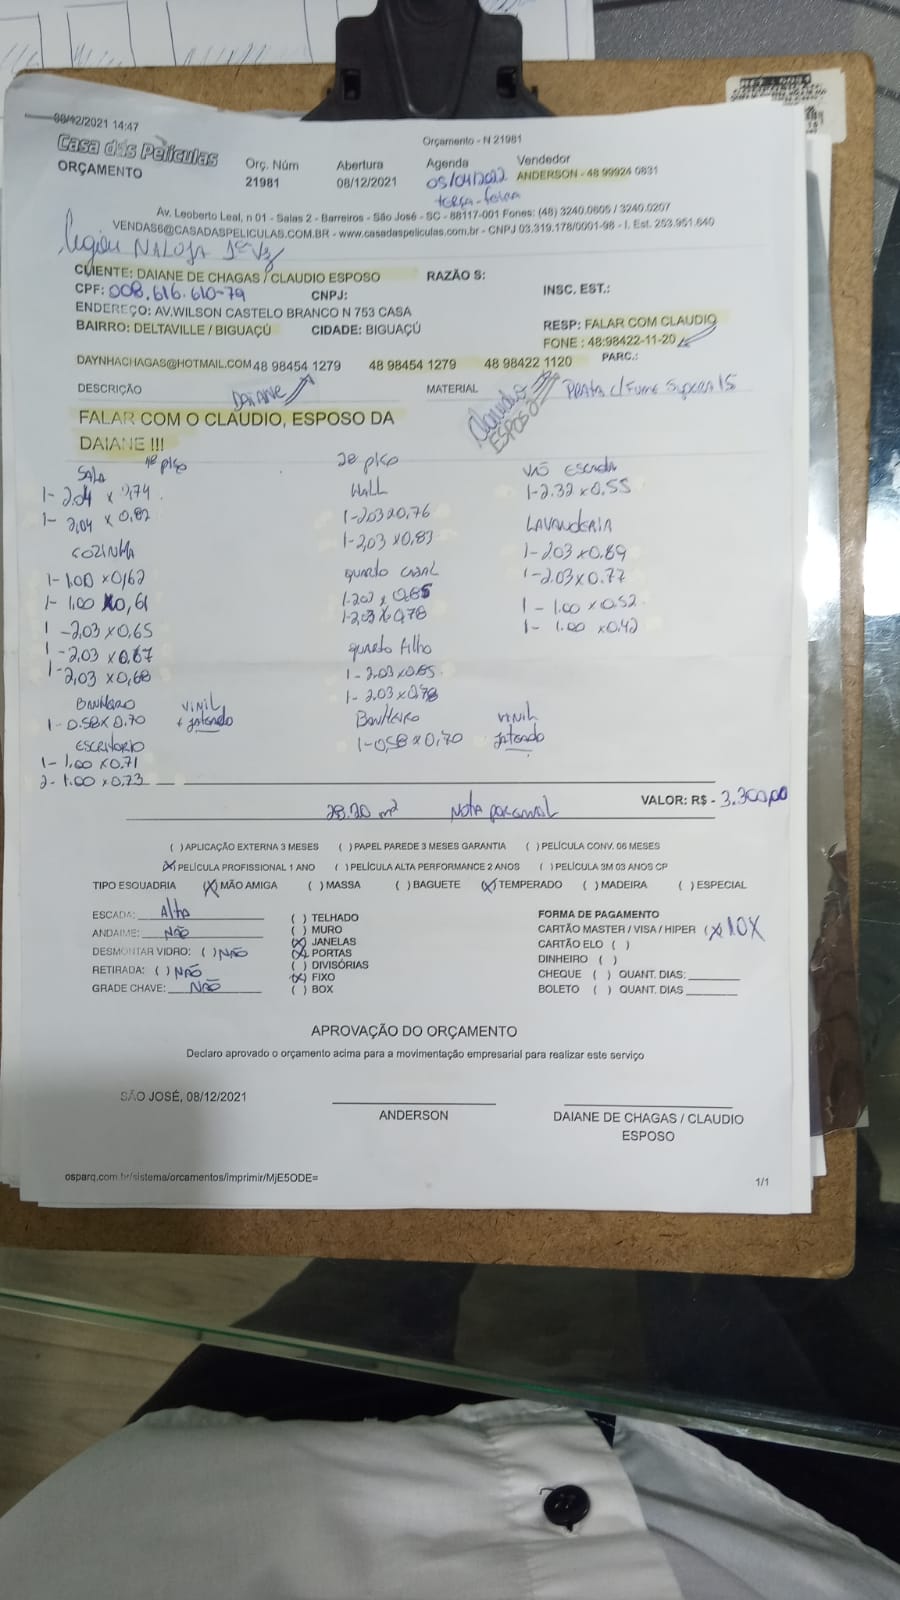 08/12/2021 14:47
Orçamento - N 21981
Casa das Películas
ORÇAMENTO
Orç. Núm
21981
Abertura
08/12/2021
Agenda
05/04/2022
terça-feira
Vendedor
ANDERSON - 48 99924 0831
Av. Leoberto Leal, n 01 - Salas 2 - Barreiros - São José - SC - 88117-001 Fones: (48) 3240.0605 / 3240.0207
VENDAS6@CASADASPELICULAS.COM.BR - www.casadaspeliculas.com.br - CNPJ 03.319.178/0001-98 - I. Est. 253.951.640
NA LOJA 1ª Vz
CLIENTE: DAIANE DE CHAGAS / CLAUDIO ESPOSO RAZÃO S:
CPF: 008.616.610-79 CNPJ: INSC. EST.:
ENDEREÇO: AV.WILSON CASTELO BRANCO N 753 CASA
BAIRRO: DELTAVILLE / BIGUAÇÚ CIDADE: BIGUAÇÚ RESP: FALAR COM CLAUDIO
FONE : 48:98422-11-20
DAYNHACHAGAS@HOTMAIL.COM 48 98454 1279 48 98454 1279 48 98422 1120 PARC.:
DESCRIÇÃO DAIANE MATERIAL Claudio ESPOSO Prata c/ Fume Supera 15
FALAR COM O CLAUDIO, ESPOSO DA
DAIANE !!!
SALA 1º piso
1- 2.04 x 0,74
1- 2,04 x 0,82
COZINHA
1- 1.00 x 0,62
1- 1.00 x 0,61
1 - 2,03 x 0,65
1 - 2,03 x 0,67
1 - 2,03 x 0,68
BANHEIRO VINIL
1- 0.58 x 0.70 + jateado
ESCRITORIO
1- 1.00 x 0.71
2- 1.00 x 0.73
2º piso
HALL
1- 2.03 x 0.76
1- 2,03 x 0,83
quarto CASAL
1- 2.03 x 0,65
1- 2,03 x 0,78
quarto filho
1- 2.03 x 0.65
1- 2.03 x 0,78
BANHEIRO VINIL
1- 0,58 x 0,70 jateado
VÃO Escada
1- 2.32 x 0.55
LAVANDERIA
1- 2.03 x 0.69
1- 2.03 x 0.77
1 - 1.00 x 0.52
1- 1.00 x 0.42
28.20 m² Nota por email VALOR: R$ - 3.300,00
( ) APLICAÇÃO EXTERNA 3 MESES ( ) PAPEL PAREDE 3 MESES GARANTIA ( ) PELÍCULA CONV. 06 MESES
(X) PELÍCULA PROFISSIONAL 1 ANO ( ) PELÍCULA ALTA PERFORMANCE 2 ANOS ( ) PELÍCULA 3M 03 ANOS CP
TIPO ESQUADRIA (X) MÃO AMIGA ( ) MASSA ( ) BAGUETE (X) TEMPERADO ( ) MADEIRA ( ) ESPECIAL
ESCADA: Alta
ANDAIME: NÃO
DESMONTAR VIDRO: ( ) NÃO
RETIRADA: ( ) NÃO
GRADE CHAVE: NÃO
( ) TELHADO
( ) MURO
(X) JANELAS
(X) PORTAS
( ) DIVISÓRIAS
(X) FIXO
( ) BOX
FORMA DE PAGAMENTO
CARTÃO MASTER / VISA / HIPER (X) 10X
CARTÃO ELO ( )
DINHEIRO ( )
CHEQUE ( ) QUANT. DIAS:
BOLETO ( ) QUANT. DIAS
APROVAÇÃO DO ORÇAMENTO
Declaro aprovado o orçamento acima para a movimentação empresarial para realizar este serviço
SÃO JOSÉ, 08/12/2021
ANDERSON
DAIANE DE CHAGAS / CLAUDIO
ESPOSO
osparq.com.br/sistema/orcamentos/imprimir/MjE5ODE=
1/1